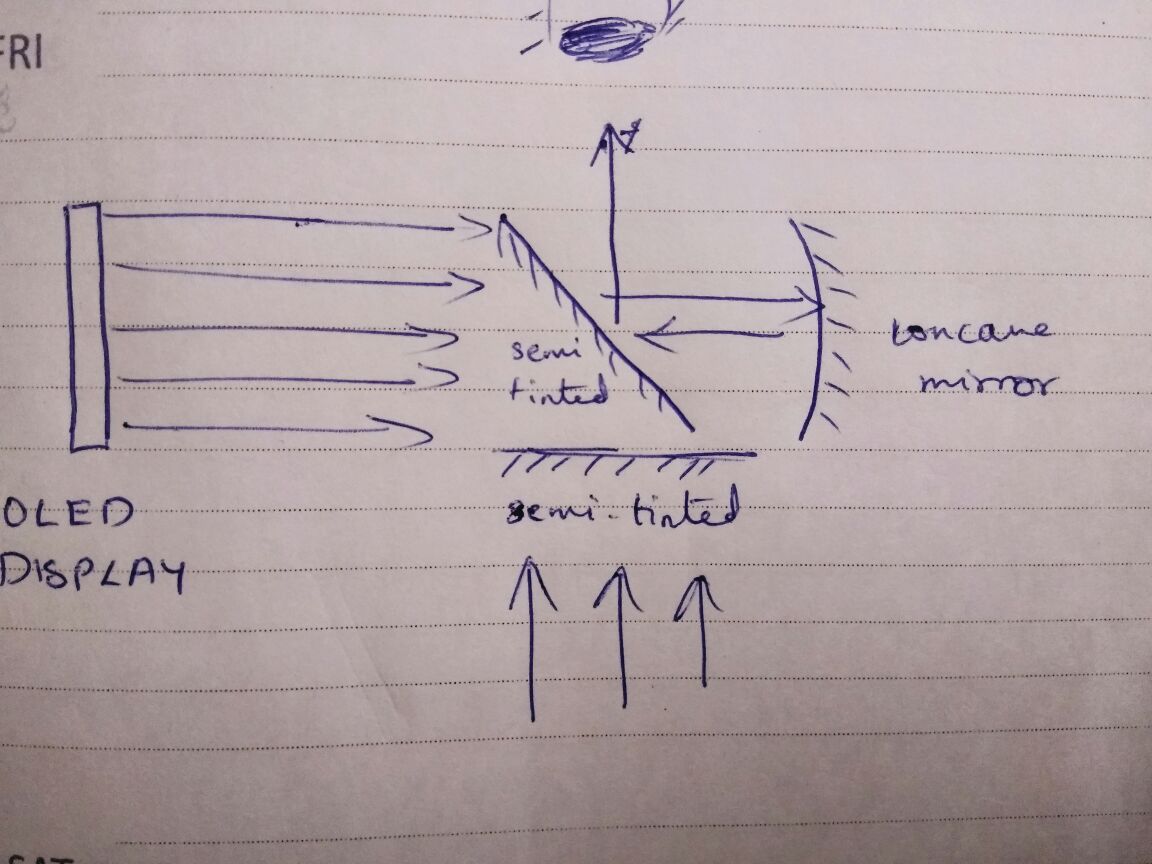 FRI
semi
tinted
concave
mirror
semi-tinted
OLED
DISPLAY
SAT